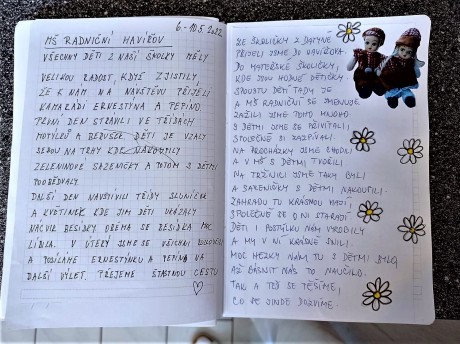 6-10.5.2022
MŠ RADNIČNÍ HAVÍŘOV
VŠECHNY DĚTI Z NAŠÍ ŠKOLKY MĚLY
VELIKOU RADOST, KDYŽ ZJISTILY,
ŽE K NÁM NA NÁVŠTĚVU PŘIJELI
KAMARÁDI ERNESTÝNA A PEPÍNO.
PRVNÍ DEN STRÁVILI VE TŘÍDÁCH
MOTÝLKŮ A BERUŠEK. DĚTI JE VZALY
SEBOU NA TRHY KDE NAKOUPILY
ZELENINOVÉ SAZENIČKY A POTOM S DĚTMI
POOBĚDVALY.
DALŠÍ DEN NAVŠTÍVILI TŘÍDY SLUNÍČEK
A KVĚTINEK KDE JIM DĚTI UKÁZALY
NÁCVIK BESÍDKY OBĚMA SE BESÍDKA MOC
LÍBILA. V ÚTERÝ JSME SE VŠICHNI
A POSÍLÁME ERNESTÝNKU A PEPÍNA NA
DALŠÍ VÝLET. PŘEJEME ŠŤASTNOU CESTU
ZE ŠKOLIČKY Z DATYNĚ
PŘIJELI JSME DO HAVÍŘOVA.
DO MATEŘSKÉ ŠKOLIČKY,
KDE JSOU HODNÉ DĚTIČKY.
SPOUSTU DĚTÍ TADY JE
A MŠ RADNIČNÍ SE JMENUJE.
ZAŽILI JSME TOHO MNOHO.
S DĚTMI JSME SE PŘIVÍTALI,
SPOLEČNĚ SI ZAZPÍVALI.
NA PROCHÁZKY JSME CHODILI
A V MŠ S DĚTMI TVOŘILI.
NA TRŽNICI JSME TAKY BYLI
A SAZENIČKY S DĚTMI NAKOUPILI.
ZAHRADU TU KRÁSNOU MAJÍ,
SPOLEČNĚ SE O NI STARAJÍ.
DĚTI I POSTÝLKU NÁM VYROBILY
A MY V NÍ KRÁSNĚ SNILI.
MOC HEZKY NÁM TU S DĚTMI BYLO,
AŽ BÁSNIT NÁS TO NAUČILO.
TAK A TEĎ SE TĚŠÍME,
CO SE JINDE DOZVÍME.